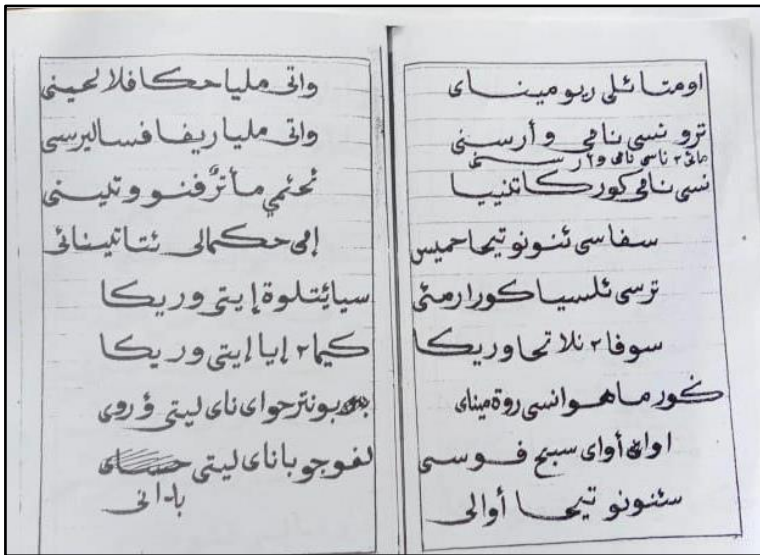 اومتائلى ريوميناى
ترو نسى نامى وأرسنى
نسى نامى كوركاتنيا
سفاسى ئنونو تيحا حميس
ترسى ئلسيا كورارمئى
سوفا٢ نلاتحا وريكا
ماهوانسى روة ميناى
أواى سبح فوسى
سئنونو تيحا أوالى
واتى مليا حكافلا لحينى
واتى مليا ريفا فساليرسى
فنو وتلينى
إمى حكمالى ئتاتيسنائى
سيايئتلوة إيتى وريكا
كيما٢ إيا إيتى وريكا
بونترحواى ناى ليتى ؤروى
لفوجوباناى ليتى
بادانى